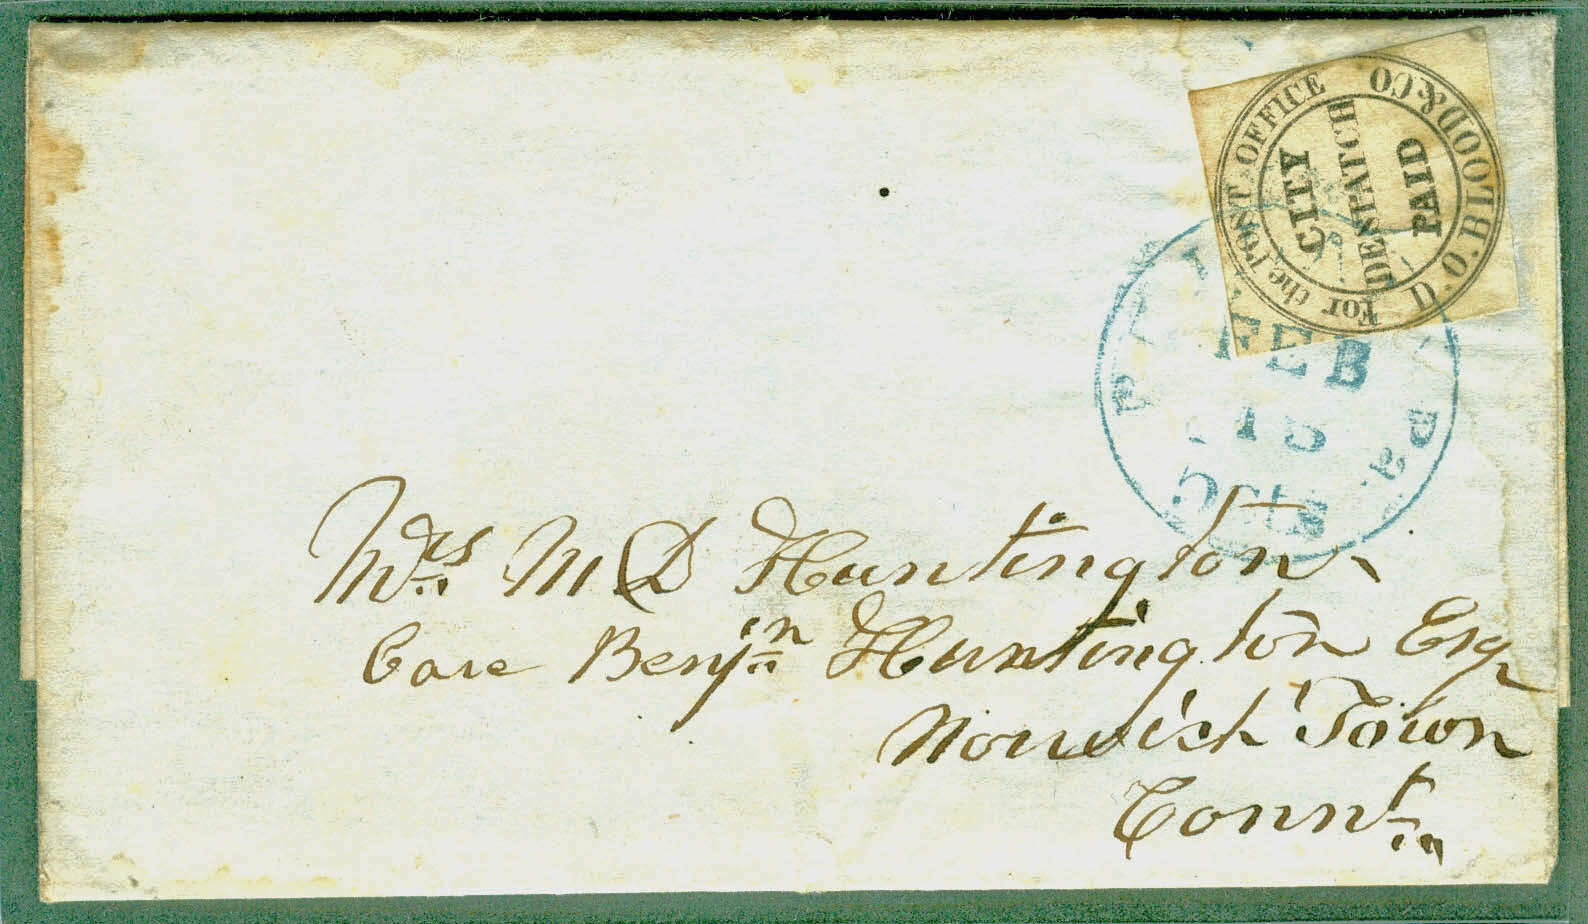 For the POST OFFICE
D.O. BLOOD & CO
CITY
DESPATCH
PAID
FEB
Pa.
5 cts
Mrs. M D Huntington
Care Benjn Huntington Esq
Norwich Town
Connt.